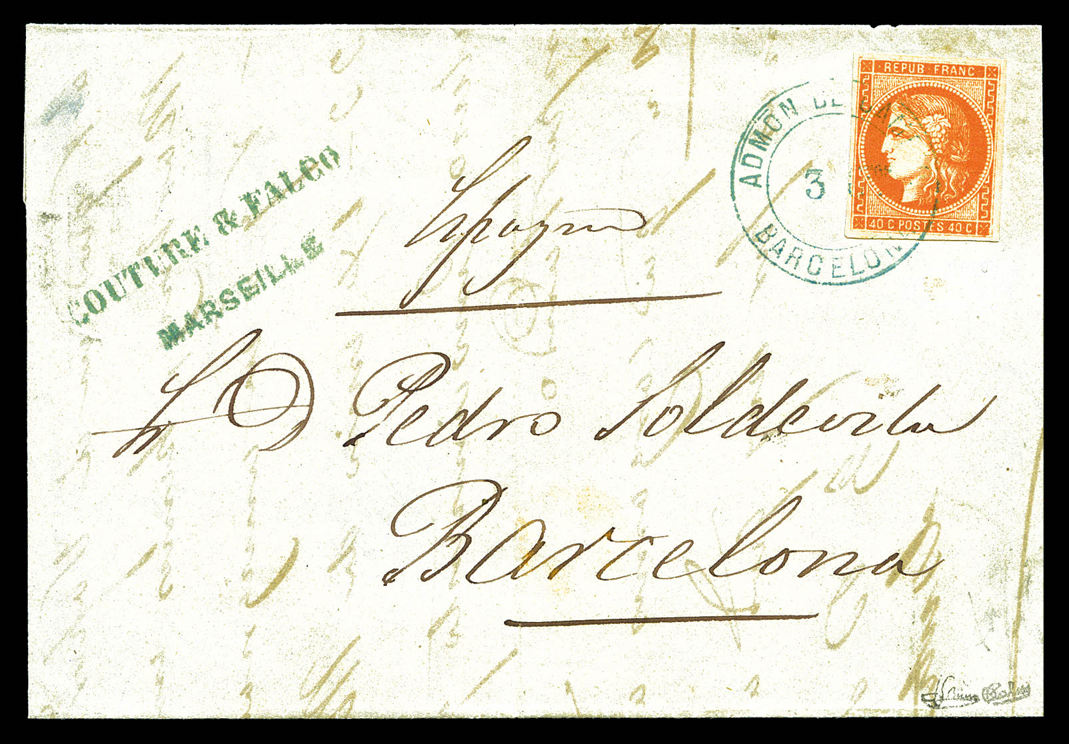 REPUB FRANC
ADMON DE
3
BARCELON
40 C POSTES 40 C
COUTURE & FALCO
MARSEILLE
Espagne
Sr Dn Pedro Soldevila
Barcelona